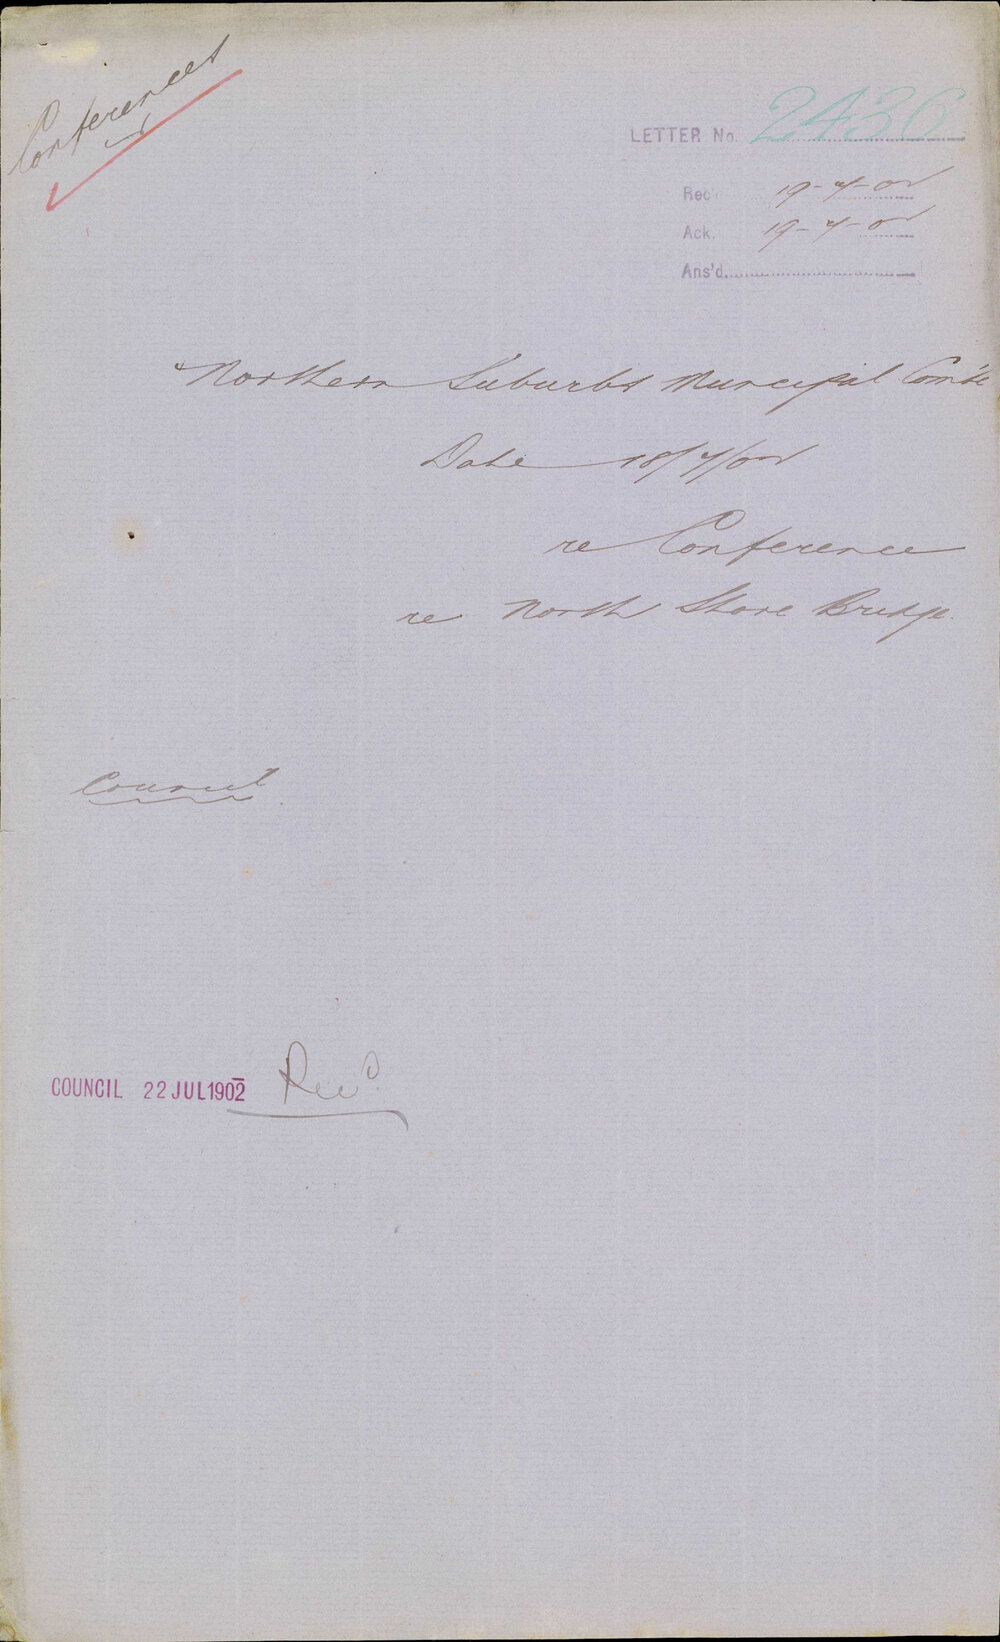 Conferences
LETTER No. 2436
Rec. 19-7-02
Ack. 19-7-02
Ans'd.
Northern Suburbs Municipal Com'tee
Date 18/7/02
re Conference
re North Shore Bridge.
Council
COUNCIL 22 JUL 1902 Recd.